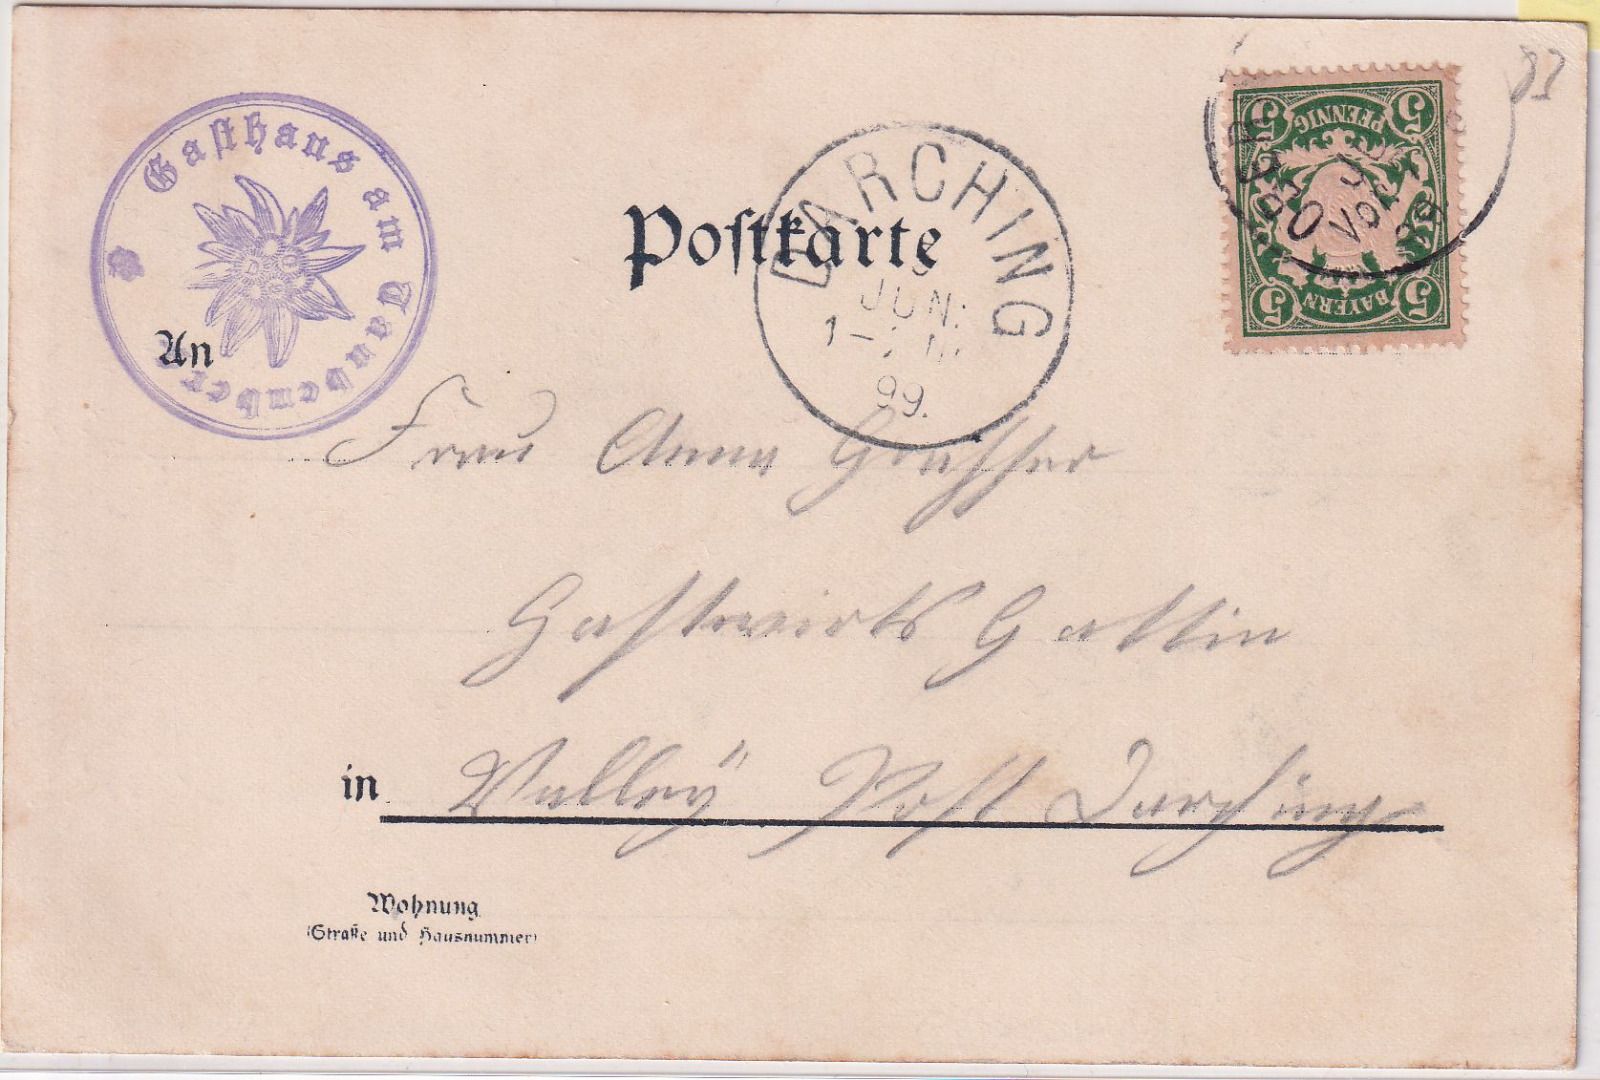 Gasthaus am Taubenberg
Postkarte
DARCHING
JUN.
99.
5 PFENNIG 5
5 BAYERN 5
An
Frau Anna Grasser
Gastwirts Gattin
in Valley Post Darching
Wohnung
(Straße und Hausnummer)
83